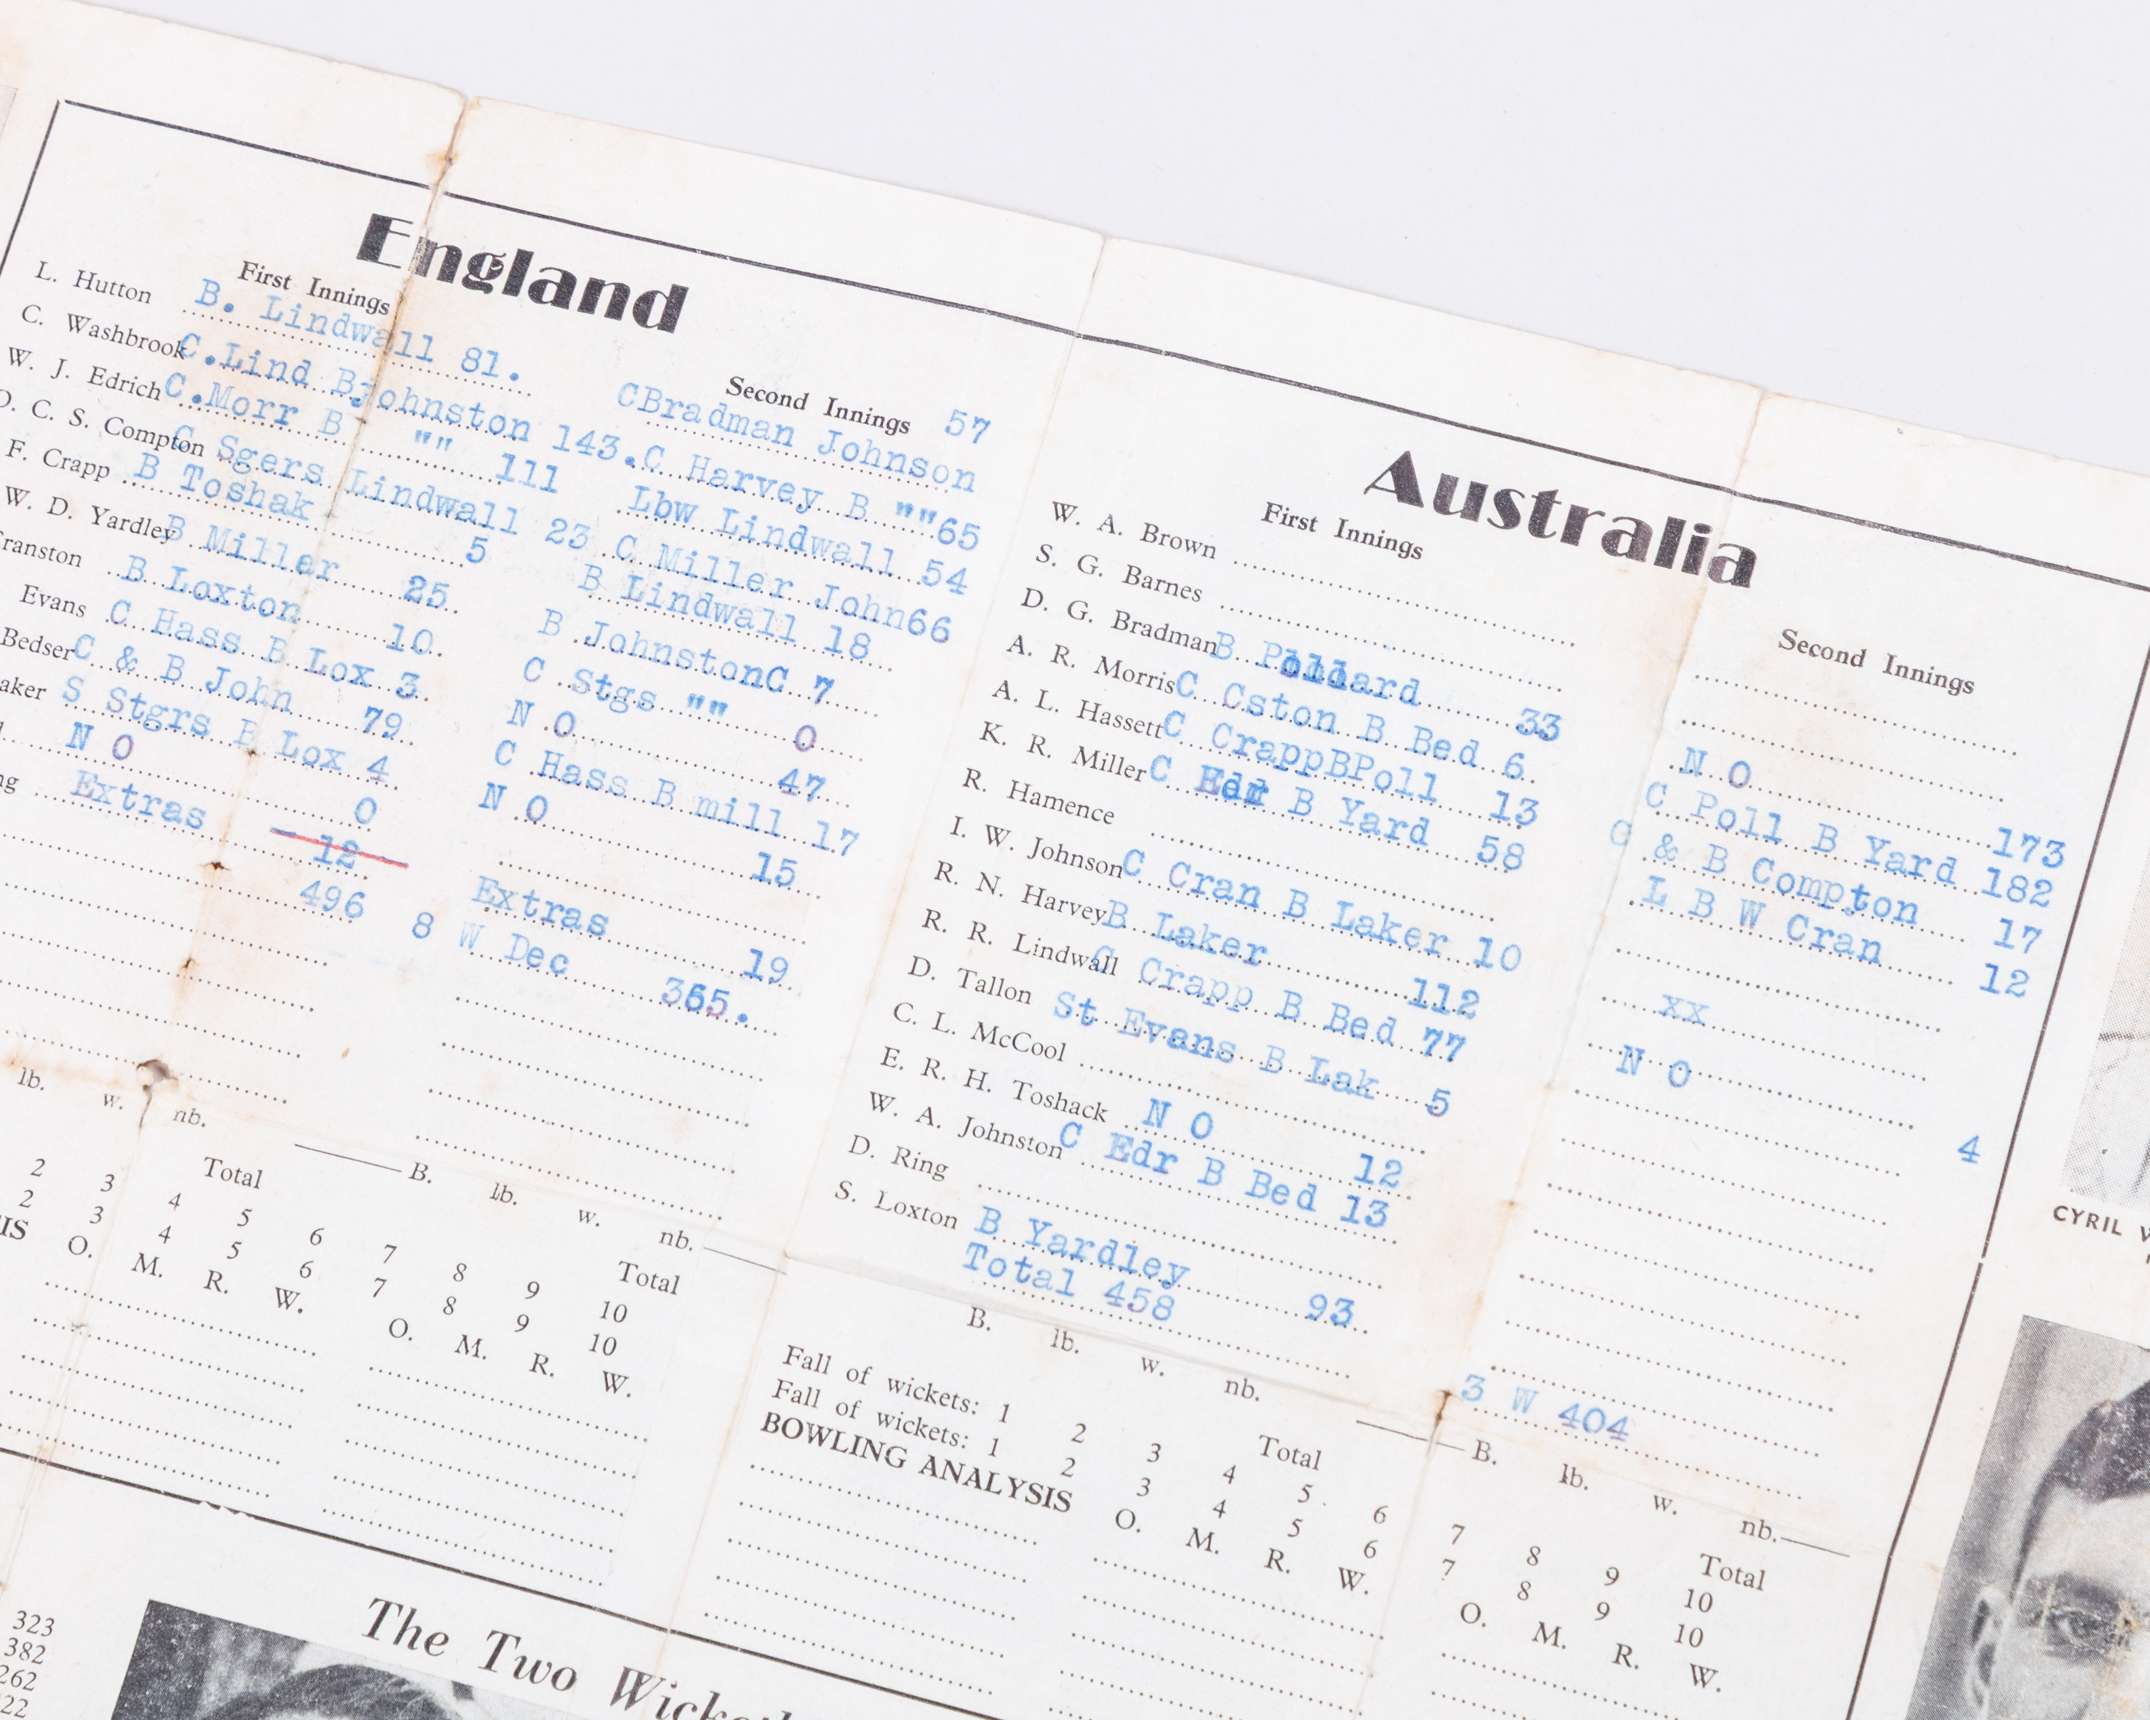 England
First Innings
Second Innings 57
L. Hutton B. Lindwall 81. CBradman Johnson
C. Washbrook C.Lind Bjohnston 143. C Harvey B "" 65
W. J. Edrich C.Morr B "" 111 Lbw Lindwall 54
D. C. S. Compton C Sgers Lindwall 23 C Miller John66
F. Crapp B Toshak 5 B Lindwall 18
W. D. Yardley B Miller 25 B Johnston 7
ranston B Loxton 10 C Stgs "" 0
Evans C Hass B Lox 3 N O 47
Bedser C & B John 79 C Hass B mill 17
aker S Stgrs B Lox 4 N O 15
N O 0
Extras 12 Extras 19
496 8 W Dec 365.
lb. w. nb. Total B. lb. w. nb. Total
2 3 4 5 6 7 8 9 10
2 3 4 5 6 7 8 9 10
IS O. M. R. W. O. M. R. W.
Australia
First Innings
Second Innings
W. A. Brown
S. G. Barnes
D. G. Bradman B Pollard 33 N O 173
A. R. Morris C Cston B Bed 6 C Poll B Yard 182
A. L. Hassett C CrappBPoll 13 C & B Compton 17
K. R. Miller C Edr B Yard 58 L B W Cran 12
R. Hamence
I. W. Johnson C Cran B Laker 10 xx
R. N. Harvey B Laker 112 N O 4
R. R. Lindwall C Crapp B Bed 77
D. Tallon St Evans B Lak 5
C. L. McCool
E. R. H. Toshack N O 12
W. A. Johnston C Edr B Bed 13
D. Ring
S. Loxton B Yardley 93
Total 458 3 W 404
B. lb. w. nb. Total B. lb. w. nb. Total
Fall of wickets: 1 2 3 4 5 6 7 8 9 10
Fall of wickets: 1 2 3 4 5 6 7 8 9 10
BOWLING ANALYSIS O. M. R. W. O. M. R. W.
CYRIL
323
382
262
22
The Two